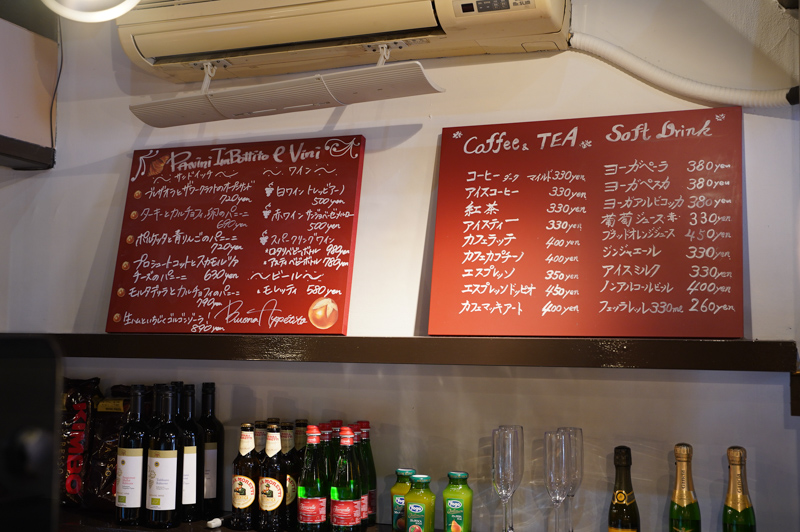 Panini Imbottito e Vini
～サンドイッチ～
ブレザオラとサワークラフトのオープンサンド
720yen
ターキーとカルチョフィ、卵のパニーニ
690yen
ポルケッタと青りんごのパニーニ
720yen
プロシュートコットとスカモルツァ
チーズのパニーニ 690yen
モルタデッラとカルチョフィのパニーニ
790yen
生ハムといちじくゴルゴンゾーラ!
890yen
～ワイン～
白ワイン トレッビアーノ
500yen
赤ワイン サンジョベーゼ・メローロ
500yen
スパークリングワイン
ロタリ ベビーボトル 980yen
アスティ ベビーボトル 780yen
～ビール～
モレッティ 550yen
Buona Appetito
Coffee & TEA Soft Drink
コーヒー ダーク マイルド 330yen
アイスコーヒー 330yen
紅茶 330yen
アイスティー 330yen
カフェラッテ 400yen
カフェカプチーノ 400yen
エスプレッソ 350yen
エスプレッソドッピオ 450yen
カフェマッキアート 400yen
ヨーガペーラ 380yen
ヨーガペスカ 380yen
ヨーガアルビコッカ 380yen
葡萄ジュース 330yen
ブラッドオレンジジュース 450yen
ジンジャエール 330yen
アイスミルク 330yen
ノンアルコールビール 400yen
フェッラレッレ 330ml 260yen
Yoga